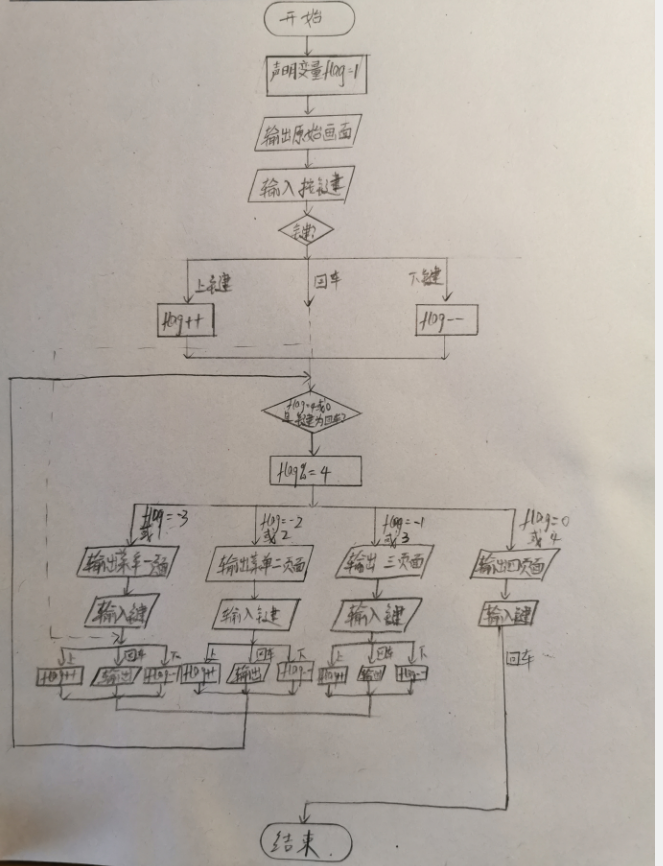 开始
声明变量flag=1
输出原始画面
输入按键
键?
上键
回车
下键
flag++
flag--
flag=4或0
且键为回车?
flag%=4
flag=-3
或
flag=-2
或2
flag=-1
或3
flag=0
或4
输出菜单一页面
输出菜单二页面
输出三页面
输出四页面
输入键
输入键
输入键
输入键
上
回车
下
上
回车
下
上
回车
下
回车
flag++
输出
flag--
flag++
输出
flag--
flag++
输出
flag--
结束